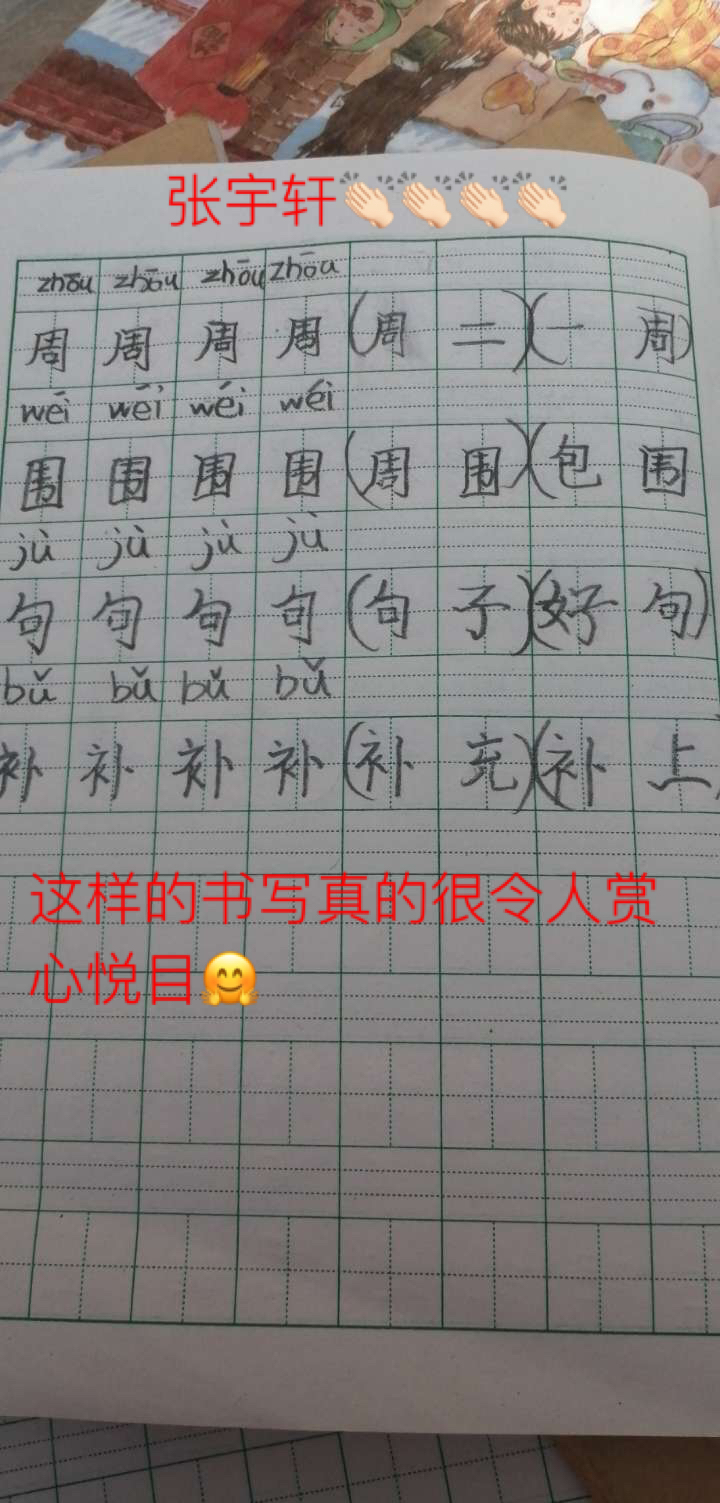 张宇轩👏🏻👏🏻👏🏻👏🏻
zhōu zhōu zhōu zhōu
周 周 周 周 (周 二)(一 周)
wéi wéi wéi wéi
围 围 围 围 (周 围)(包 围
jù jù jù jù
句 句 句 句 (句 子)(好 句)
bǔ bǔ bǔ bǔ
补 补 补 补 (补 充)(补 上)
这样的书写真的很令人赏
心悦目🤗